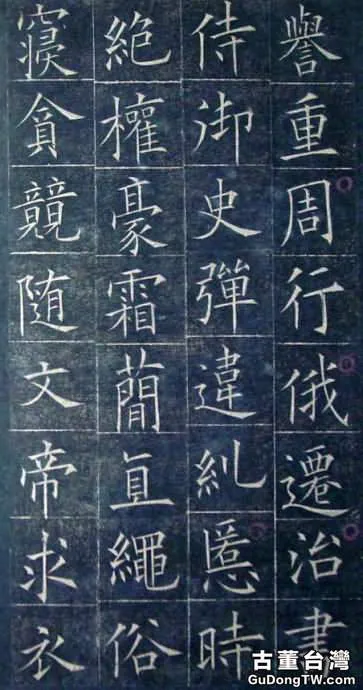 譽重周行俄遷治書
侍御史彈違糺慝時
絶權豪霜蕑直繩俗
寢貪競随文帝求衣
古董台灣
GuDongTW.com